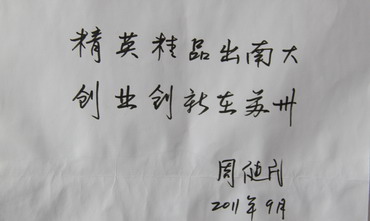 精英精品出南大
创业创新在苏州
周
2011年9月